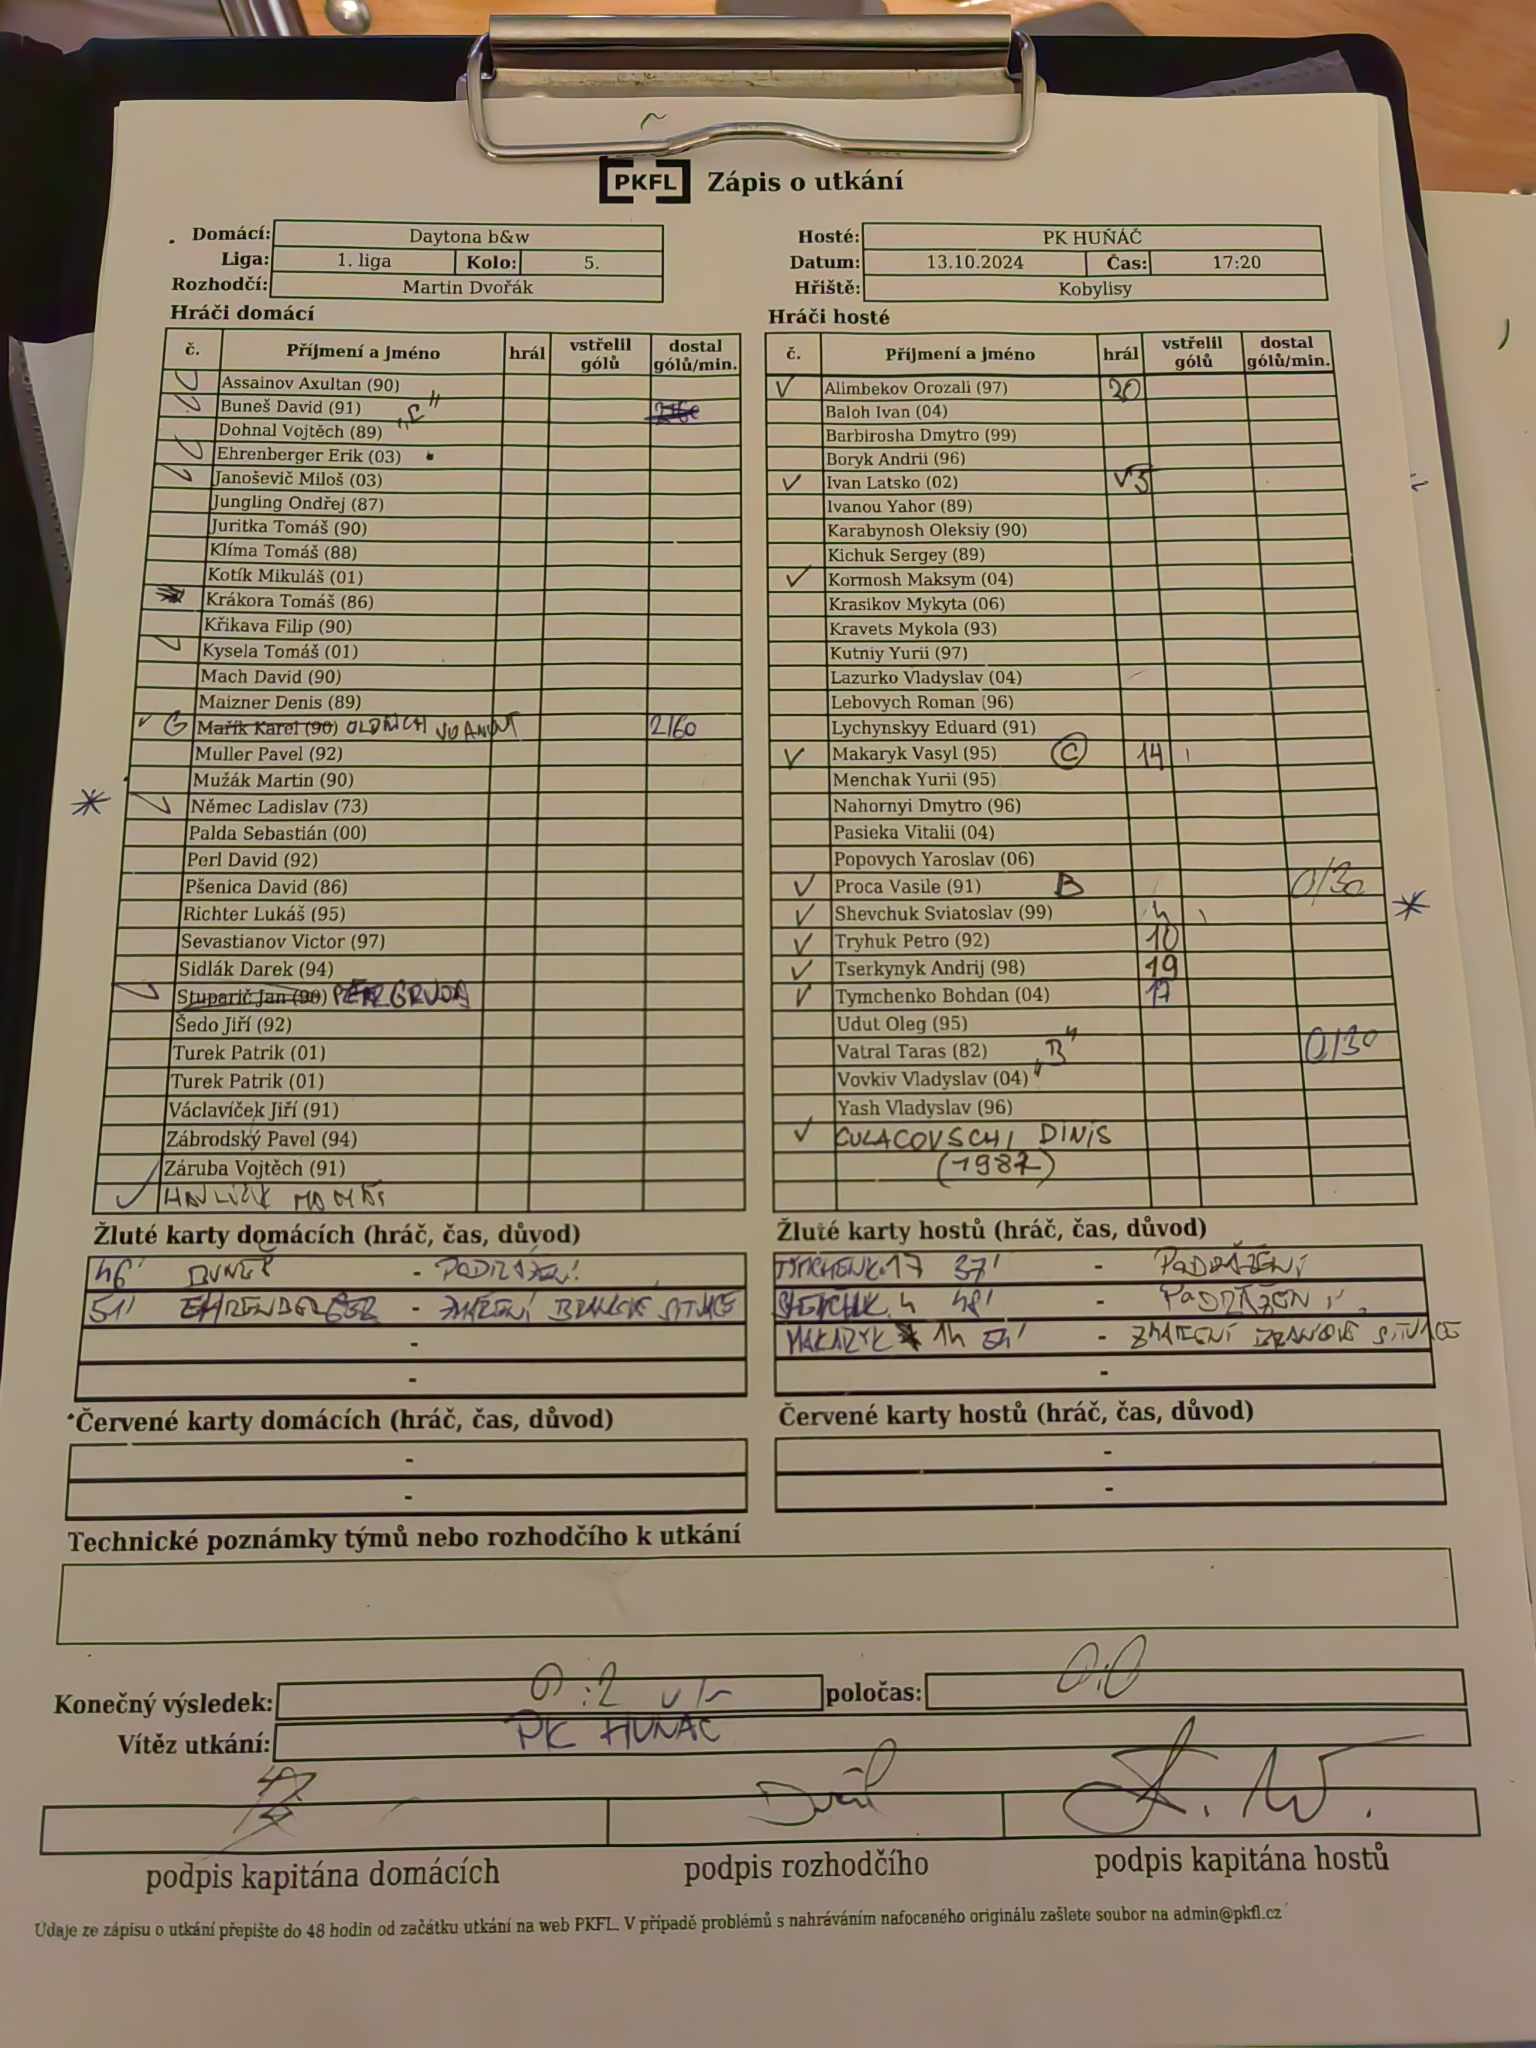 PKFL Zápis o utkání
Domácí: Daytona b&w
Liga: 1. liga Kolo: 5.
Rozhodčí: Martin Dvořák
Hosté: PK HUŇÁČ
Datum: 13.10.2024 Čas: 17:20
Hřiště: Kobylisy
Hráči domácí
č. Příjmení a jméno hrál vstřelil gólů dostal gólů/min.
Assainov Axultan (90)
Buneš David (91)
Dohnal Vojtěch (89)
Ehrenberger Erik (03)
Janoševič Miloš (03)
Jungling Ondřej (87)
Juritka Tomáš (90)
Klíma Tomáš (88)
Kotík Mikuláš (01)
Krákora Tomáš (86)
Křikava Filip (90)
Kysela Tomáš (01)
Mach David (90)
Maizner Denis (89)
G Mařík Karel (90) OLDŘICH 2/60
Muller Pavel (92)
Mužák Martin (90)
Němec Ladislav (73)
Palda Sebastián (00)
Perl David (92)
Pšenica David (86)
Richter Lukáš (95)
Sevastianov Victor (97)
Sidlák Darek (94)
Stuparič Jan (90) PETR GRUDA
Šedo Jiří (92)
Turek Patrik (01)
Turek Patrik (01)
Václavíček Jiří (91)
Zábrodský Pavel (94)
Záruba Vojtěch (91)
Hráči hosté
č. Příjmení a jméno hrál vstřelil gólů dostal gólů/min.
✓ Alimbekov Orozali (97) 20
Baloh Ivan (04)
Barbirosha Dmytro (99)
Boryk Andrii (96)
✓ Ivan Latsko (02)
Ivanou Yahor (89)
Karabynosh Oleksiy (90)
Kichuk Sergey (89)
✓ Kormosh Maksym (04)
Krasikov Mykyta (06)
Kravets Mykola (93)
Kutniy Yurii (97)
Lazurko Vladyslav (04)
Lebovych Roman (96)
Lychynskyy Eduard (91)
✓ Makaryk Vasyl (95) C 14
Menchak Yurii (95)
Nahornyi Dmytro (96)
Pasieka Vitalii (04)
Popovych Yaroslav (06)
✓ Proca Vasile (91) B 0/30
✓ Shevchuk Sviatoslav (99) 4
✓ Tryhuk Petro (92) 10
✓ Tserkynyk Andrij (98) 19
✓ Tymchenko Bohdan (04) 17
Udut Oleg (95)
Vatral Taras (82) "B" 0/30
Vovkiv Vladyslav (04)
Yash Vladyslav (96)
✓ CULACOVSCHI DINIS
(1987)
Žluté karty domácích (hráč, čas, důvod)
46' BUNEŠ - PODRÁŽENÍ
51' EHRENBERGER - ZMAŘENÍ BRANKOVÉ SITUACE
-
-
Žluté karty hostů (hráč, čas, důvod)
TYMCHENK. 17 37' - PODRÁŽENÍ
SHEVCHUK 4 48' - PODRÁŽENÍ
MAKARYK 14 54' - ZMAŘENÍ BRANKOVÉ SITUACE
-
Červené karty domácích (hráč, čas, důvod)
-
-
Červené karty hostů (hráč, čas, důvod)
-
-
Technické poznámky týmů nebo rozhodčího k utkání
Konečný výsledek: 0:2 poločas: 0:0
Vítěz utkání: PK HUŇÁČ
podpis kapitána domácích podpis rozhodčího podpis kapitána hostů
Udaje ze zápisu o utkání přepište do 48 hodin od začátku utkání na web PKFL. V případě problémů s nahráváním nafoceného originálu zašlete soubor na admin@pkfl.cz